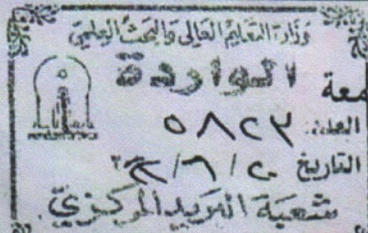 وزارة التعليم العالي والبحث العلمي
الواردة
معة
العدد: ٥٨٢٣
التاريخ
شعبة البريد المركزي